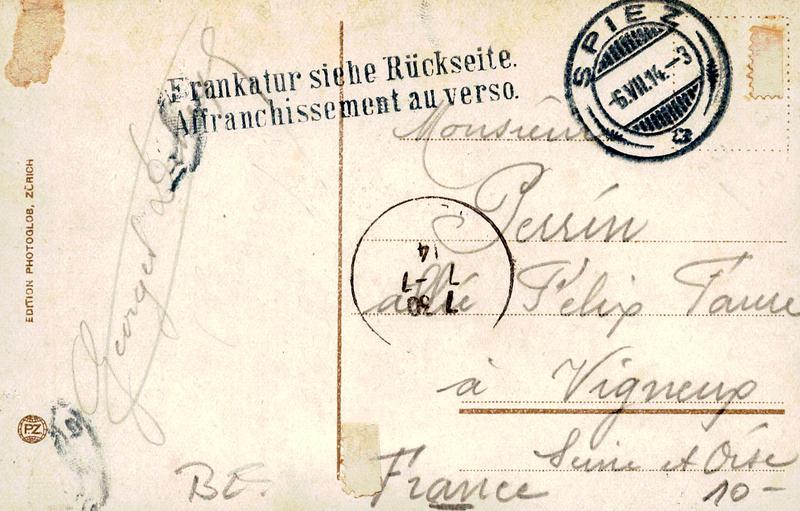 Frankatur siehe Rückseite.
Affranchissement au verso.
SPIEZ
-6.VII.14.-3
Monsieur
Perrin
allée Félix Faure
à Vigneux
Seine et Oise
France
10-
EDITION PHOTOGLOB, ZÜRICH
PZ
Georges
BE.
7 30
7 -7
14